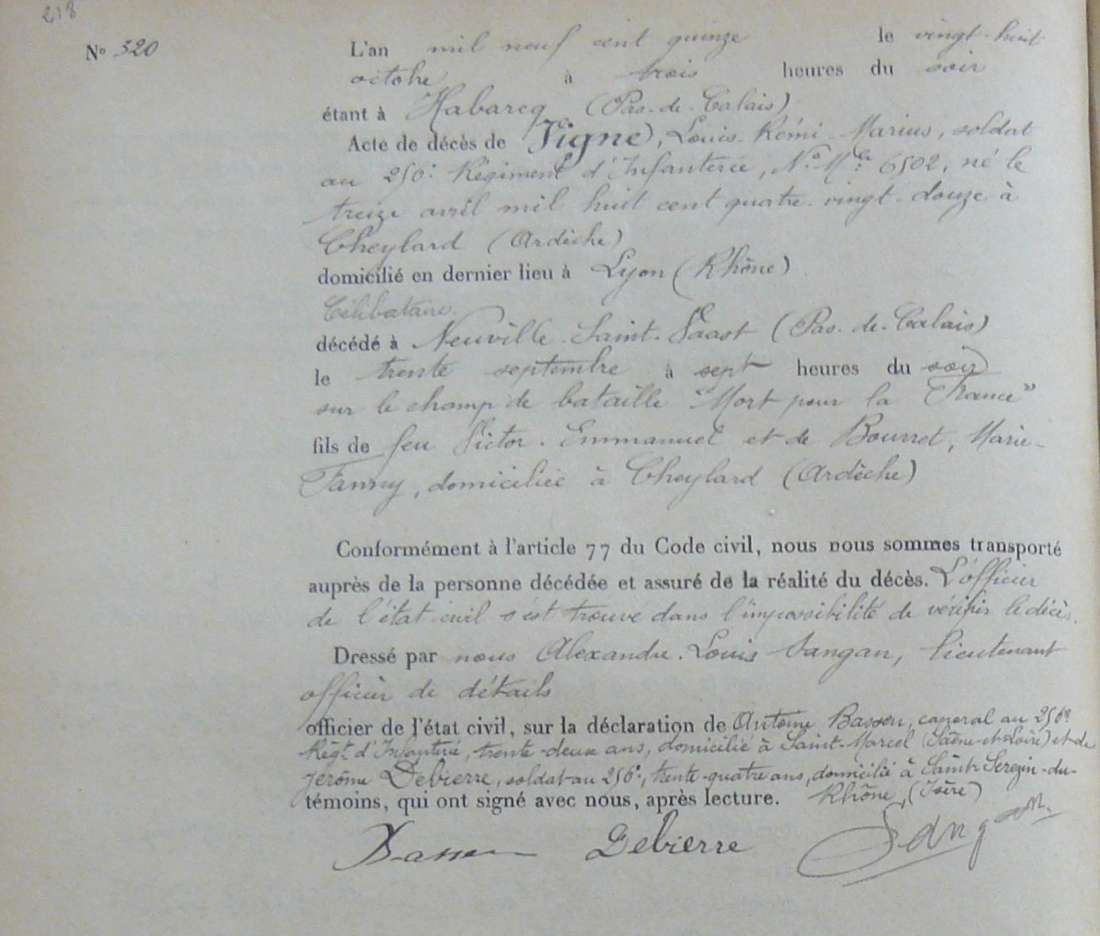 218
N° 320
L'an mil neuf cent quinze le vingt-huit
octobre à trois heures du soir
étant à Habarcq (Pas-de-Calais)
Acte de décès de Vigne, Louis-Rémi-Marius, soldat
au 256e Régiment d'Infanterie, N° Mle 6502, né le
treize avril mil huit cent quatre-vingt-douze à
Cheylard (Ardèche)
domicilié en dernier lieu à Lyon (Rhône)
Célibataire.
décédé à Neuville-Saint-Vaast (Pas-de-Calais)
le trente septembre à sept heures du soir
sur le champ de bataille "Mort pour la France"
fils de feu Victor-Emmanuel et de Bourret, Marie-
Fanny, domiciliée à Cheylard (Ardèche)
Conformément à l'article 77 du Code civil, nous nous sommes transporté
auprès de la personne décédée et assuré de la réalité du décès. L'officier
de l'état civil s'est trouvé dans l'impossibilité de vérifier le décès.
Dressé par nous Alexandre-Louis Sangan, lieutenant
officier de détails
officier de l'état civil, sur la déclaration de Antoine Basson, caporal au 256e
Régt d'Infanterie, trente-deux ans, domicilié à Saint-Marcel (Saône-et-Loire) et de
Jérôme Debierre, soldat au 256e, trente-quatre ans, domicilié à Saint-Serezin-du-
témoins, qui ont signé avec nous, après lecture. Rhône, (Isère)
Basson Debierre Sangan